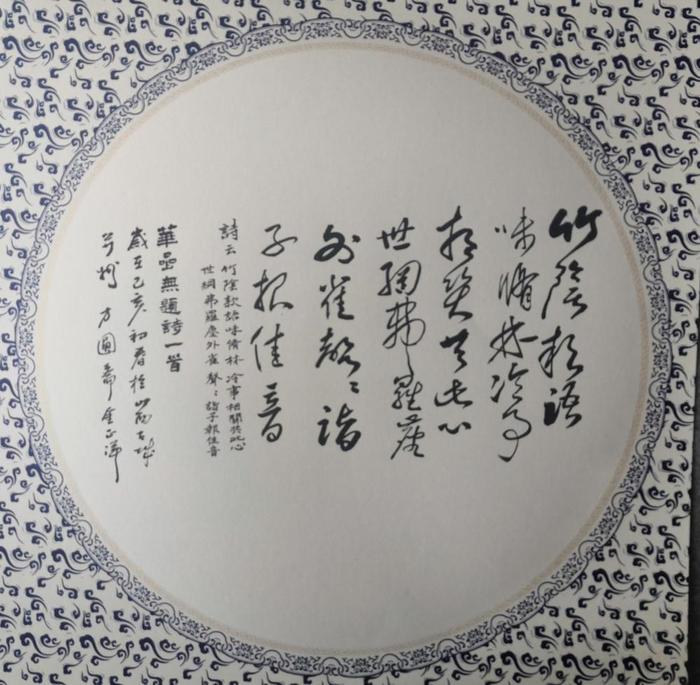 竹陰款語
味脩林冷事
相關共此心
世網弗羅塵
外雀聲〻諧
子報佳音
詩云 竹陰款語味脩林 冷事相關共此心
世網弗羅塵外雀 聲〻諧子報佳音
華嵒無題詩一首
歲在己亥初春於
方圓齋